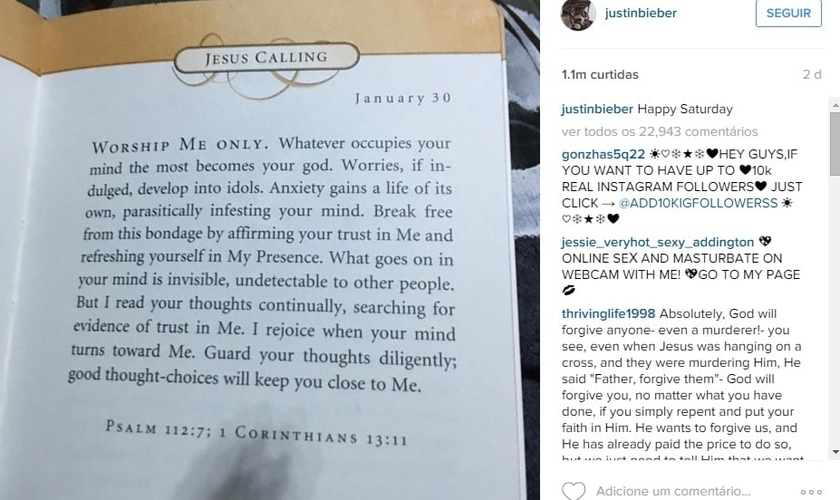 JESUS CALLING
January 30
WORSHIP ME ONLY. Whatever occupies your
mind the most becomes your god. Worries, if in-
dulged, develop into idols. Anxiety gains a life of its
own, parasitically infesting your mind. Break free
from this bondage by affirming your trust in Me and
refreshing yourself in My Presence. What goes on in
your mind is invisible, undetectable to other people.
But I read your thoughts continually, searching for
evidence of trust in Me. I rejoice when your mind
turns toward Me. Guard your thoughts diligently;
good thought-choices will keep you close to Me.
PSALM 112:7; 1 CORINTHIANS 13:11
justinbieber
SEGUIR
1.1m curtidas
2 d
justinbieber Happy Saturday
ver todos os 22,943 comentários
gonzhas5q22 ☀♡❄★❄♥HEY GUYS,IF
YOU WANT TO HAVE UP TO ♥10k
REAL INSTAGRAM FOLLOWERS♥ JUST
CLICK → @ADD10KIGFOLLOWERSS ☀
♡❄★❄♥
jessie_veryhot_sexy_addington 💖
ONLINE SEX AND MASTURBATE ON
WEBCAM WITH ME! 💖GO TO MY PAGE
💋
thrivinglife1998 Absolutely, God will
forgive anyone- even a murderer!- you
see, even when Jesus was hanging on a
cross, and they were murdering Him, He
said "Father, forgive them"- God will
forgive you, no matter what you have
done, if you simply repent and put your
faith in Him. He wants to forgive us, and
He has already paid the price to do so,
but we just need to tell Him that we want
Adicione um comentário...